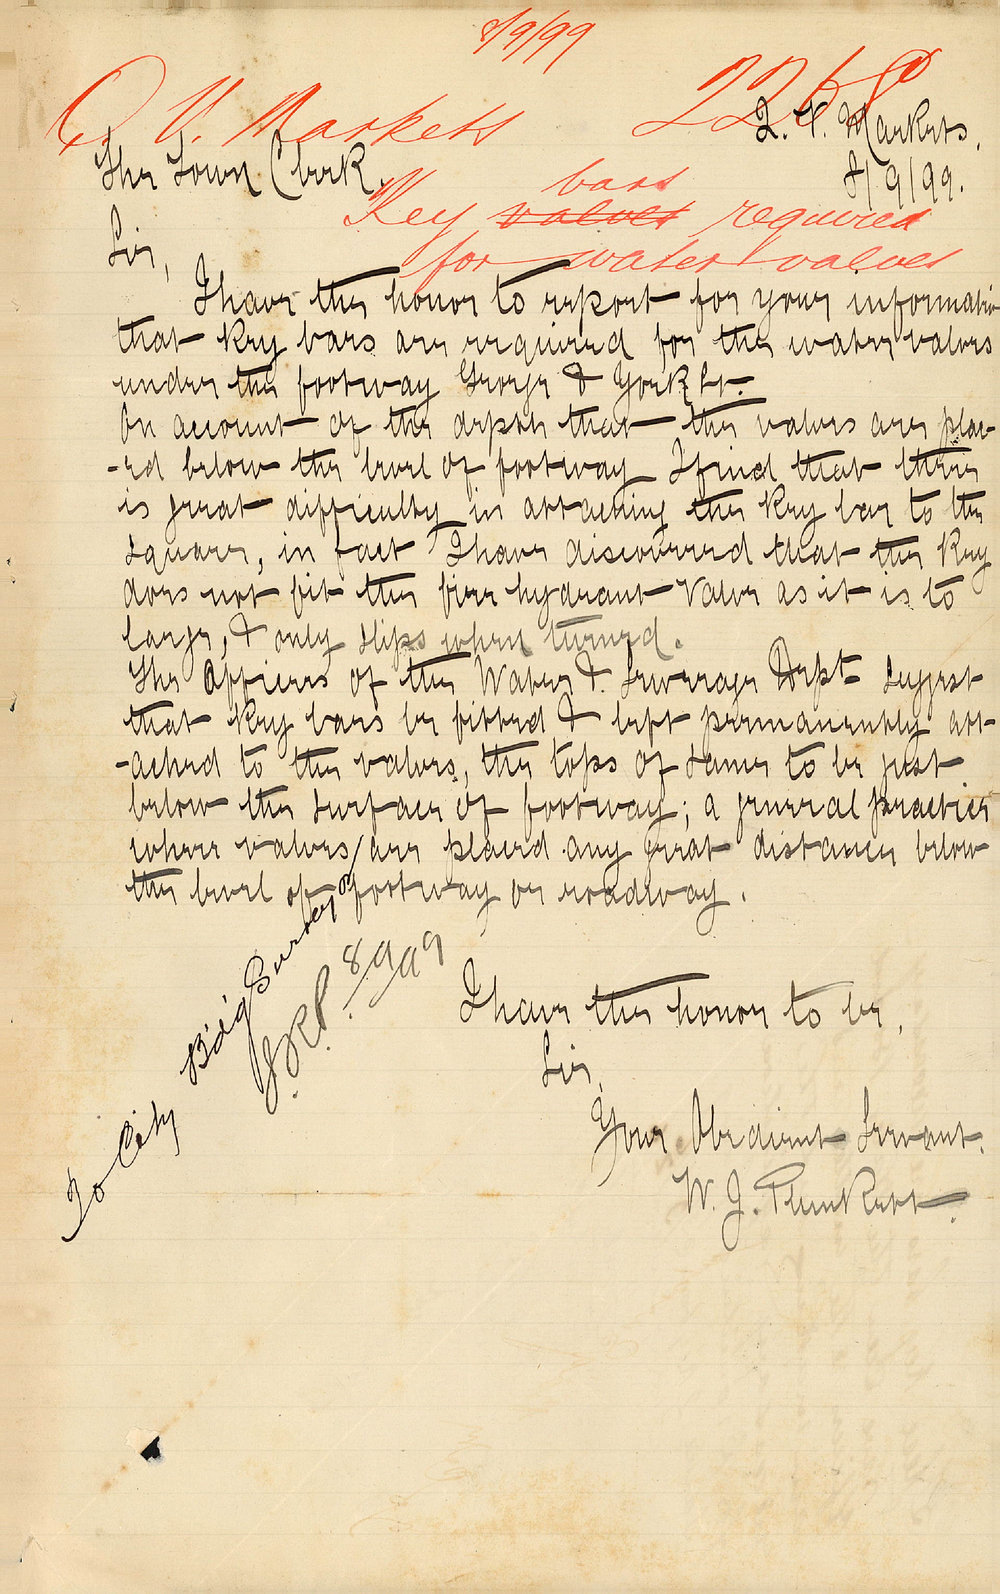 8/9/99
Q. V. Markets 2268
Q. V. Markets.
The Town Clerk, 8/9/99.
Key valves bars required
for water valves
Sir,
I have the honor to report for your informatio
that key bars are required for the water valves
under the footway George & York St.
On account of the depth that the valves are plac-
-ed below the level of footway I find that there
is great difficulty in attaching the key bar to the
square, in fact I have discovered that the key
does not fit the fire hydrant valve as it is to
large, & only slips when turned.
The Officers of the Water & Sewerage Dept suggest
that key bars be fitted & left permanently att-
-ached to the valves, the tops of same to be just
below the surface of footway; a general practice
where valves are placed any great distance below
the level of footway or roadway.
I have the honor to be,
Sir,
Your Obedient Servant.
W. J. Plunkett.
To City Bldg Surveyor
8/9/99